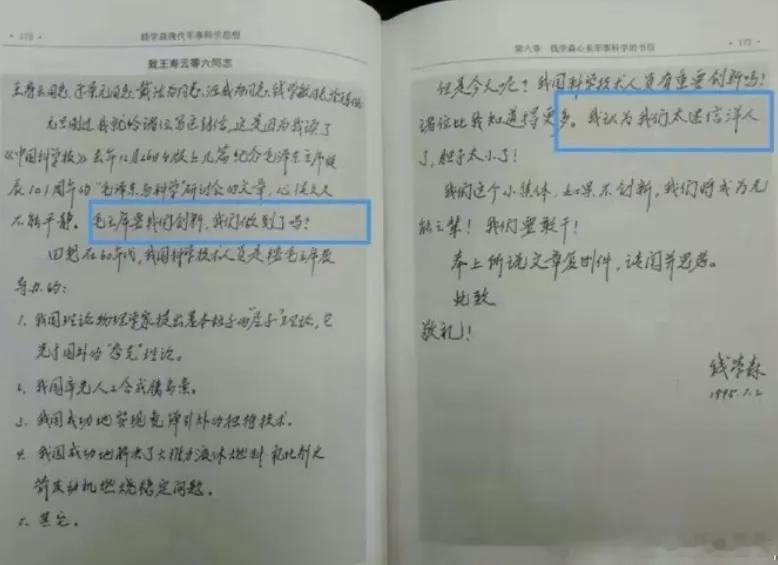 · 176 ·
钱学森现代军事科学思想
致王寿云等六同志
王寿云同志、于景元同志、戴汝为同志、汪成为同志、钱学敏同志、涂元季同志：
元旦刚过我就给诸位写这封信，这是因为我读了
《中国科学报》去年12月26日4版上几篇纪念毛泽东主席诞
辰101周年的“毛泽东与科学”研讨会的文章，心情久久
不能平静。毛主席要我们创新，我们做到了吗？
回想在60年代，我国科学技术人员是按毛主席教
导办的：
1、我国理论物理学家提出基本粒子的“层子”理论，它
先于国外的“夸克”理论。
2、我国率先人工合成胰岛素。
3、我国成功地实现氢弹引爆的独特技术。
4、我国成功地解决了大推力液体燃料-氧化剂之
箭发动机燃烧稳定问题。
5、其它。
第六章 钱学森心系军事科学的书信
· 177 ·
但是今天呢？我国科学技术人员有重要创新吗？
诸位比我知道得更多。我认为我们太迷信洋人
了，胆子太小了！
我们这个小集体，如果不创新，我们将成为无
能之辈！我们要敢干！
奉上所说文章复印件，请阅并思考。
此致
敬礼！
钱学森
1995.1.2